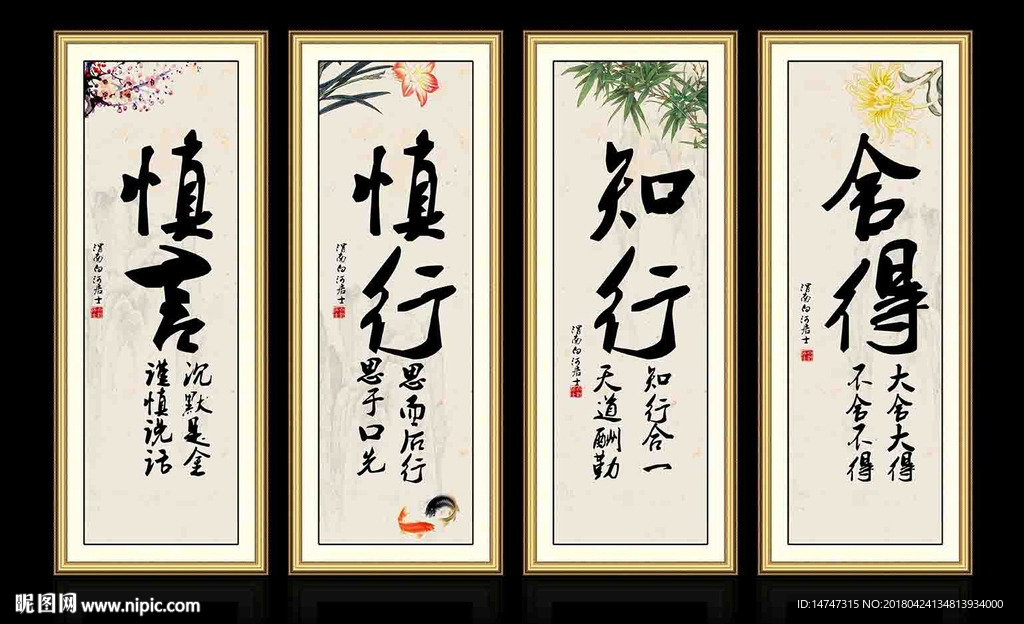 慎言
沉默是金
谨慎说话
渭南白河居士
慎行
思而后行
思于口先
渭南白河居士
知行
知行合一
天道酬勤
渭南白河居士
舍得
大舍大得
不舍不得
渭南白河居士
昵图网 www.nipic.com
ID:14747315 NO:20180424134813934000